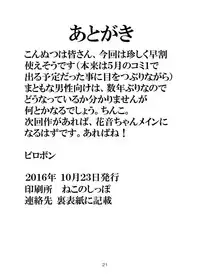 あとがき
こんぬつは皆さん、今回は珍しく早割
使えそうです（本来は5月のコミ1で
出る予定だった事に目をつぶりながら）
まともな男性向けは、数年ぶりなので
どうなっているか分かりませんが
何とかなるでしょう。ちんこ。
次回作があれば、花音ちゃんメインに
なるはずです。あればね！
ピロポン
2016年 10月23日発行
印刷所 ねこのしっぽ
連絡先 裏表紙に記載
21